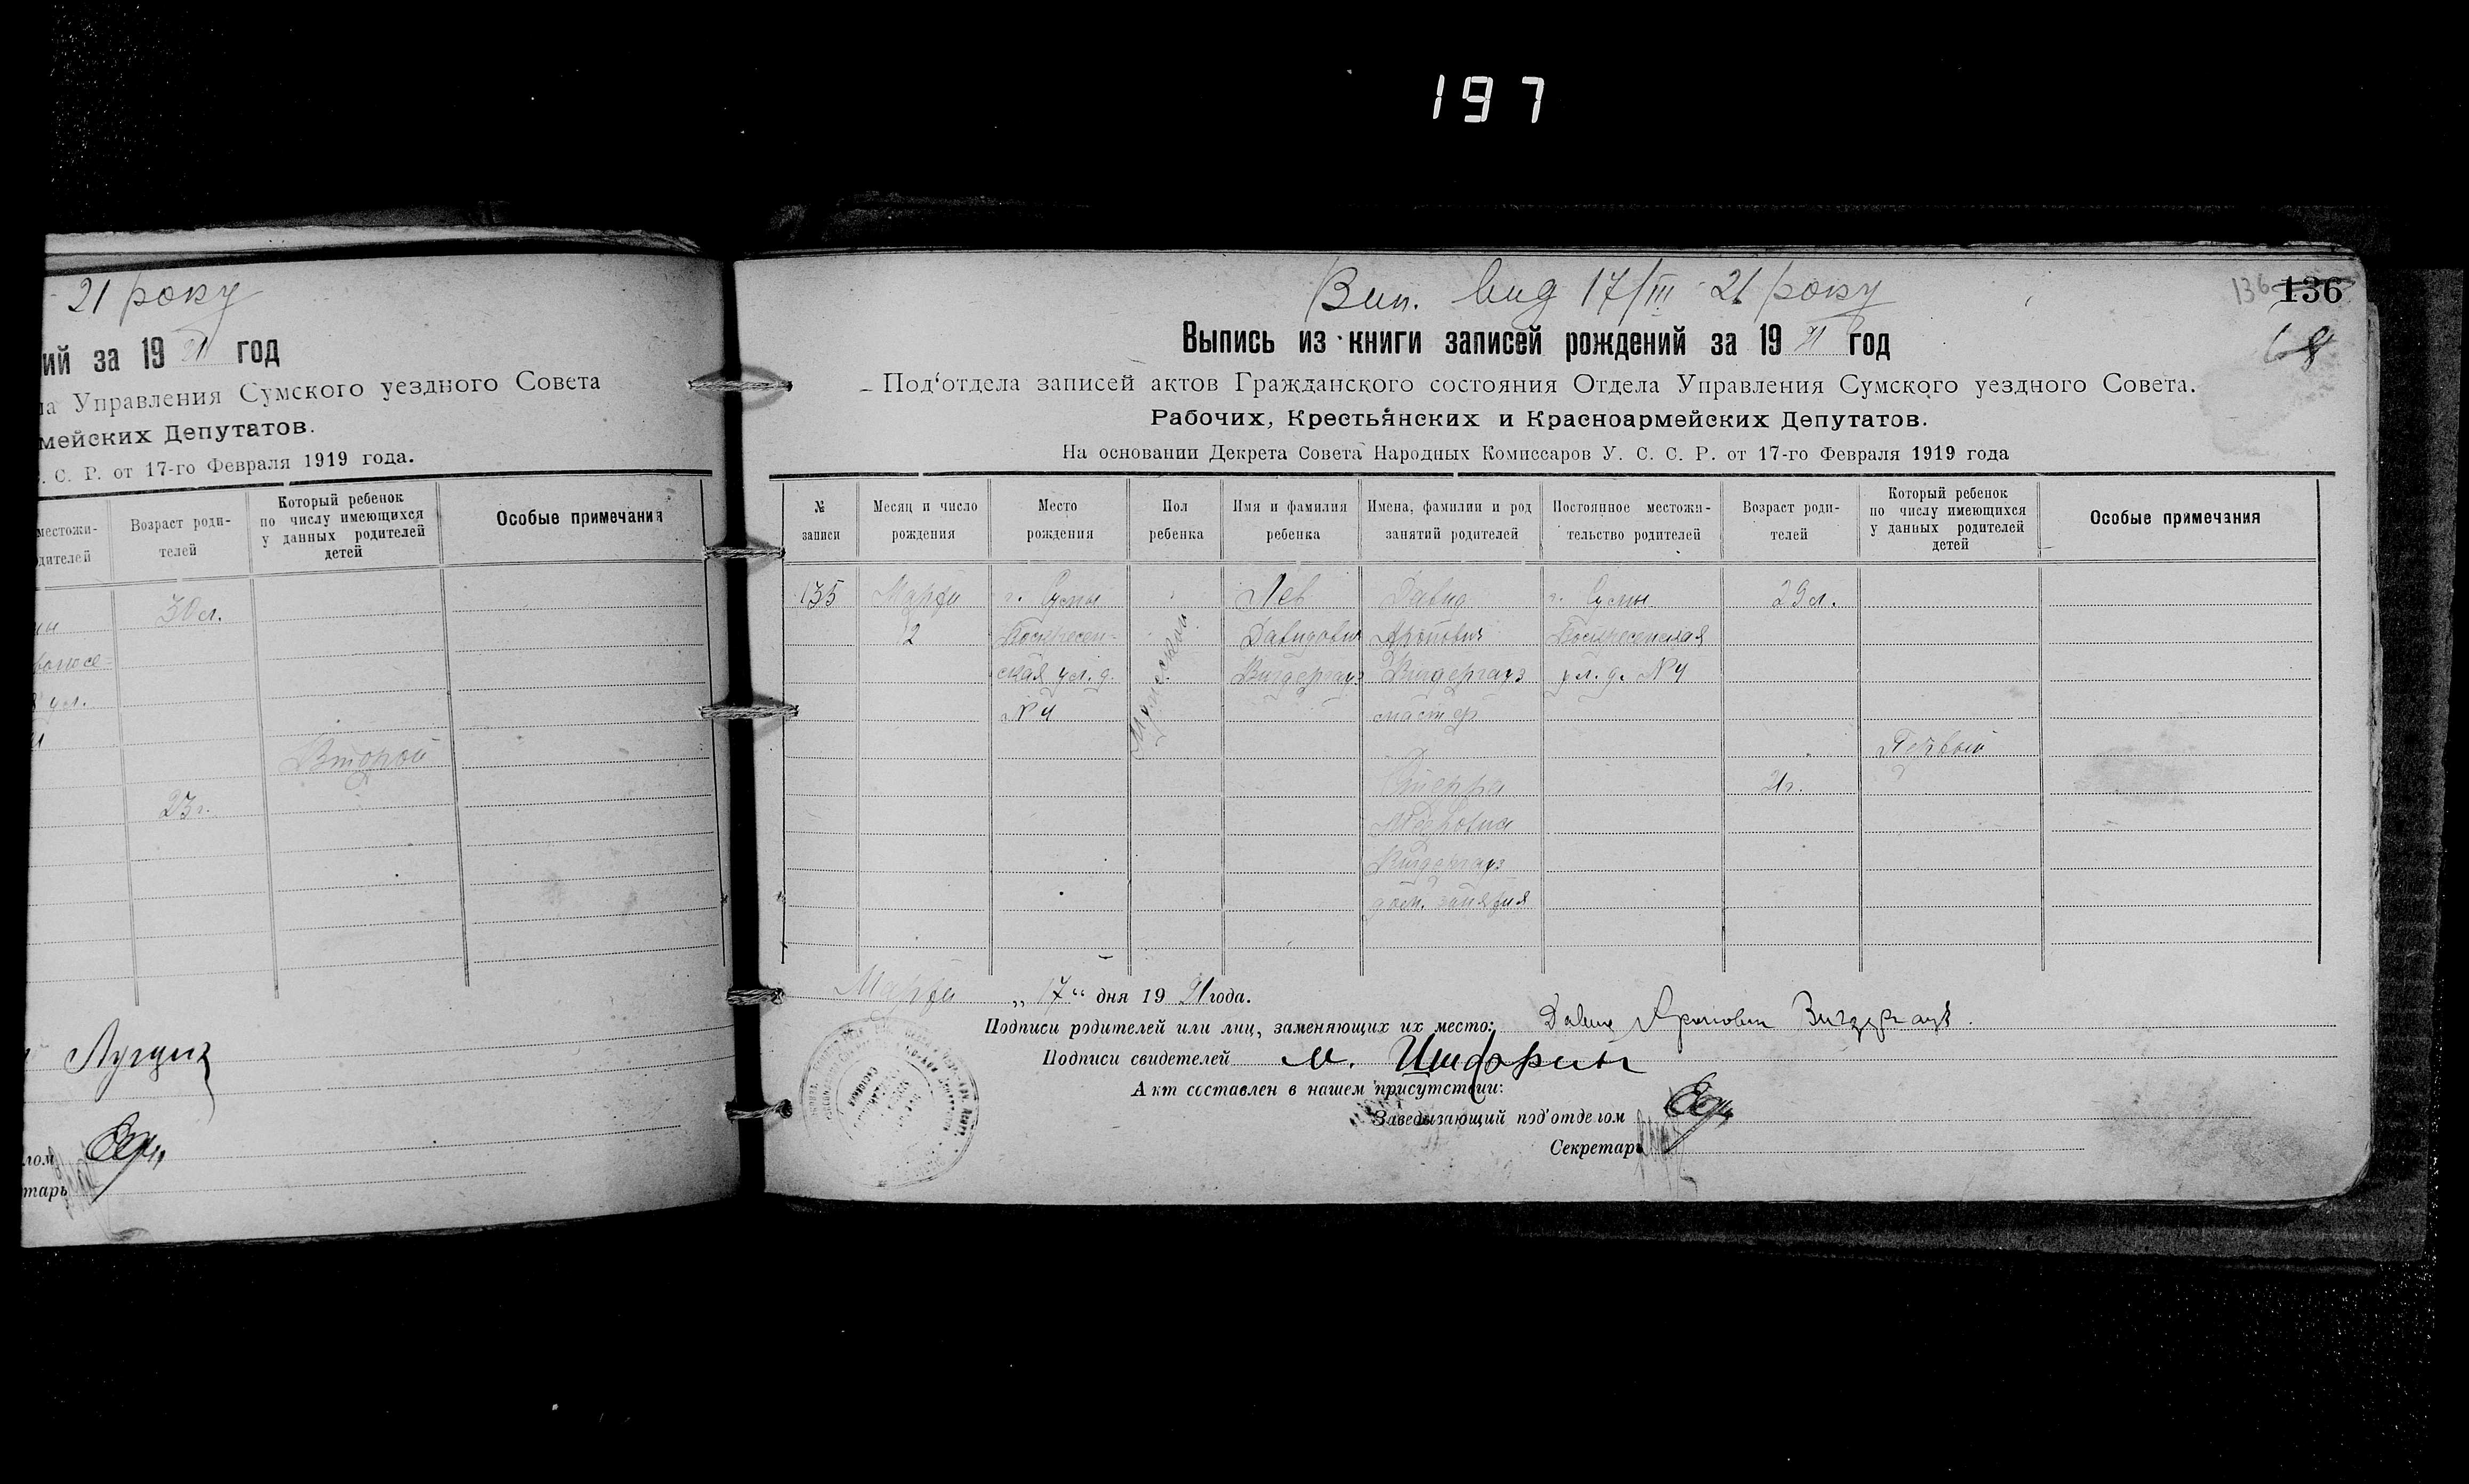 197
21 року
ий за 19 21 год
ла Управления Сумского уездного Совета
мейских Депутатов.
. С. Р. от 17-го Февраля 1919 года.
местожи-
дителей
Возраст роди-
телей
Который ребенок
по числу имеющихся
у данных родителей
детей
Особые примечания
30 л.
ул.
Второй
23 г.
лом
тарь
Вип. вид 17/III 21 року
136 136
Выпись из книги записей рождений за 19 21 год
Под'отдела записей актов Гражданского состояния Отдела Управления Сумского уездного Совета.
Рабочих, Крестьянских и Красноармейских Депутатов.
На основании Декрета Совета Народных Комиссаров У. С. С. Р. от 17-го Февраля 1919 года
№
записи
Месяц и число
рождения
Место
рождения
Пол
ребенка
Имя и фамилия
ребенка
Имена, фамилии и род
занятий родителей
Постоянное местожи-
тельство родителей
Возраст роди-
телей
Который ребенок
по числу имеющихся
у данных родителей
детей
Особые примечания
135
Марта
12
г. Сумы
Воскресен-
ская ул. д.
№ 4
Мужской
Лев
Давидович
Вигдергауз
Давид
Аронович
Вигдергауз
мастер
г. Сумы
Воскресенская
ул. д. № 4
29 л.
Первый
21 г.
Вигдергауз
дом. занятия
Марта „ 17 “ дня 19 21 года.
Подписи родителей или лиц, заменяющих их место: Давид Аронович Вигдергауз.
Подписи свидетелей М.
Акт составлен в нашем присутствии:
Заведывающий под'отделом
Секретарь